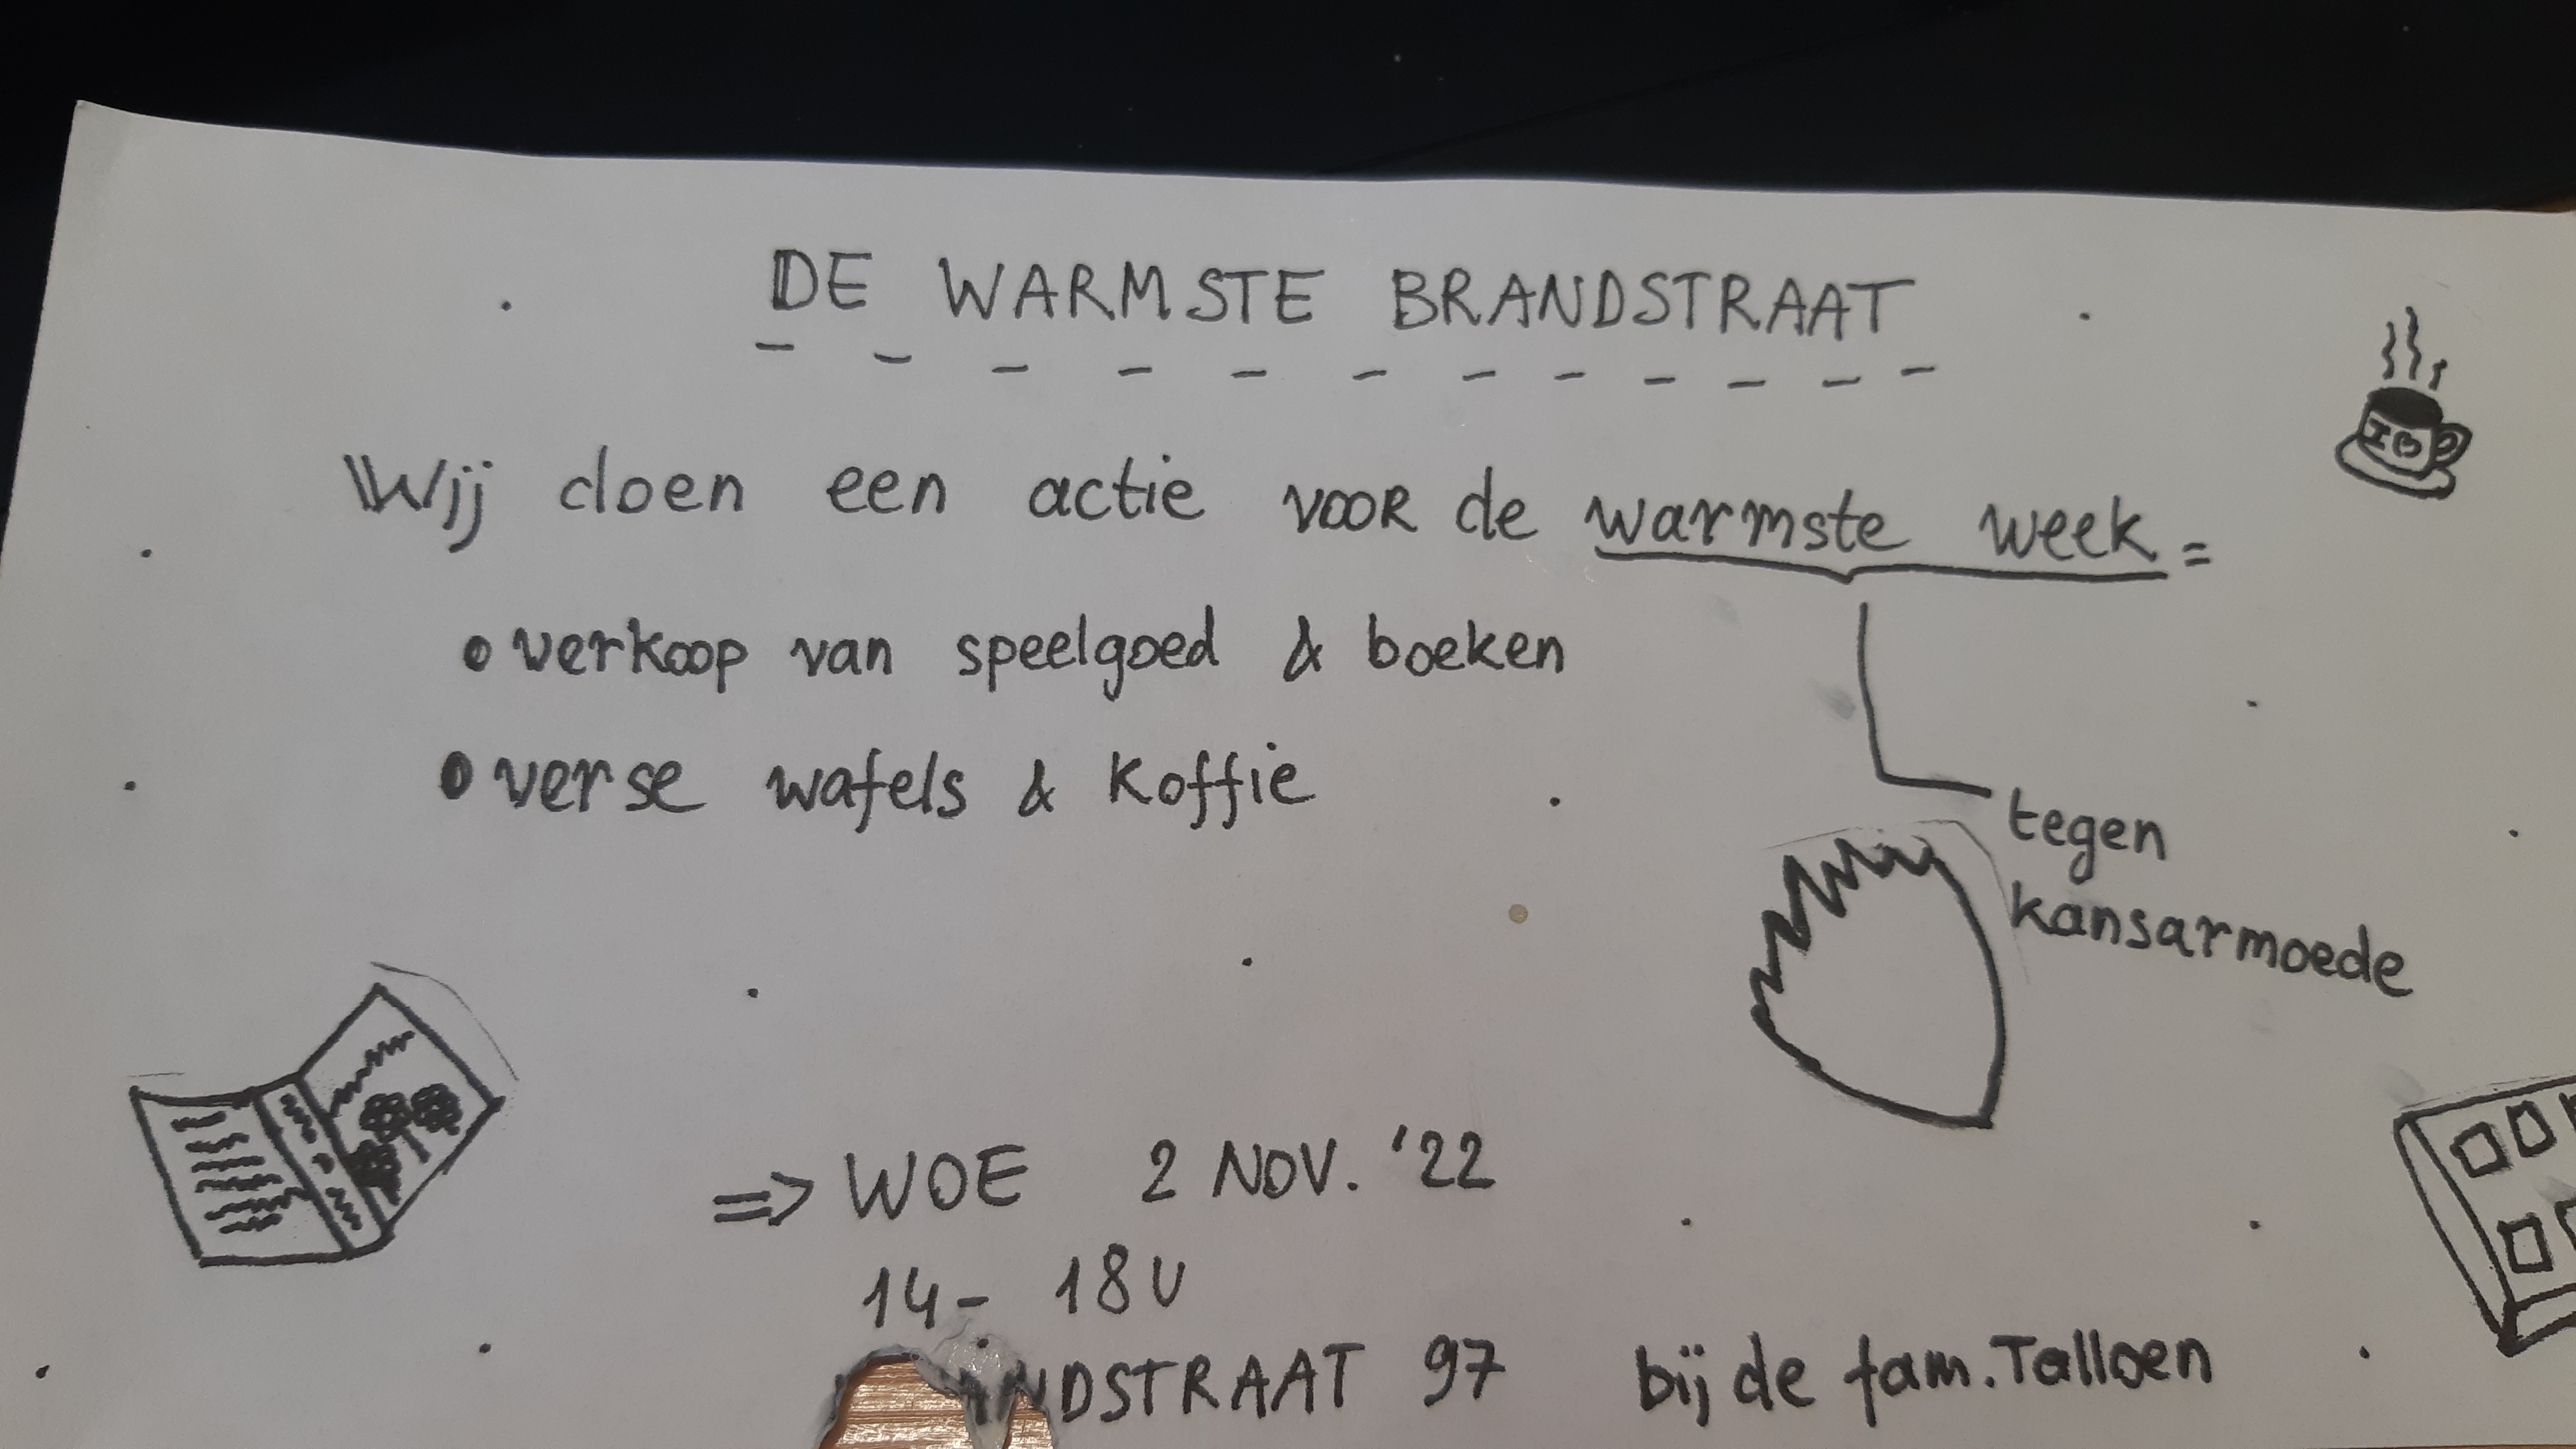 DE WARMSTE BRANDSTRAAT
Wij doen een actie VOOR de warmste week =
• verkoop van speelgoed & boeken
• verse wafels & koffie
tegen
kansarmoede
=> WOE 2 NOV. '22
14- 18U
ANDSTRAAT 97 bij de fam. Talloen